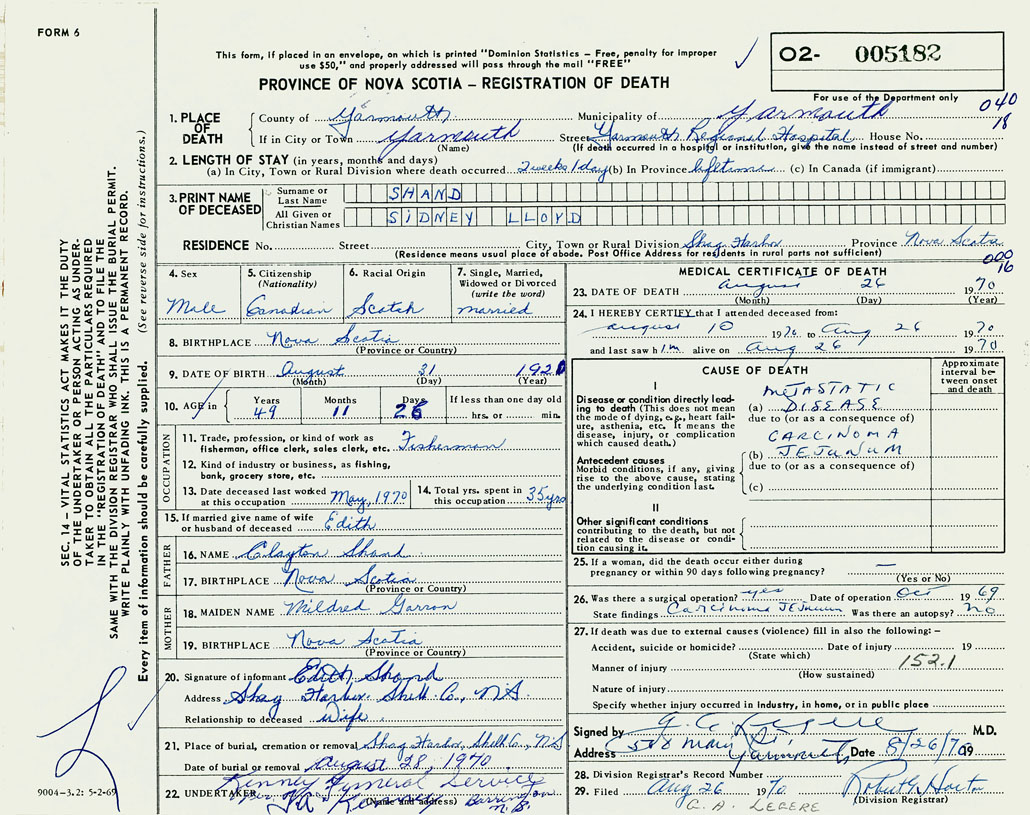 FORM 6
This form, if placed in an envelope, on which is printed "Dominion Statistics – Free, penalty for improper
use $50," and properly addressed will pass through the mail "FREE"
O2- 005182
PROVINCE OF NOVA SCOTIA – REGISTRATION OF DEATH
For use of the Department only
040
18
1. PLACE OF DEATH
County of Yarmouth Municipality of Yarmouth
If in City or Town Yarmouth Street Yarmouth Regional Hospital House No.
(Name) (If death occurred in a hospital or institution, give the name instead of street and number)
2. LENGTH OF STAY (in years, months and days)
(a) In City, Town or Rural Division where death occurred 2 weeks 1 day (b) In Province lifetime (c) In Canada (if immigrant)
3. PRINT NAME OF DECEASED
Surname or Last Name SHAND
All Given or Christian Names SIDNEY LLOYD
RESIDENCE No. Street City, Town or Rural Division Shag Harbor Province Nova Scotia
(Residence means usual place of abode. Post Office Address for residents in rural parts not sufficient)
000
16
4. Sex
Male
5. Citizenship
(Nationality)
Canadian
6. Racial Origin
Scotch
7. Single, Married,
Widowed or Divorced
(write the word)
married
8. BIRTHPLACE Nova Scotia
(Province or Country)
9. DATE OF BIRTH August 31 1921
(Month) (Day) (Year)
10. AGE in Years Months Days If less than one day old
49 11 26 hrs. or min.
OCCUPATION
11. Trade, profession, or kind of work as
fisherman, office clerk, sales clerk, etc. Fisherman
12. Kind of industry or business, as fishing,
bank, grocery store, etc.
13. Date deceased last worked
at this occupation May, 1970
14. Total yrs. spent in
this occupation 35 yrs
15. If married give name of wife
or husband of deceased Edith
FATHER
16. NAME Clayton Shand
17. BIRTHPLACE Nova Scotia
(Province or Country)
MOTHER
18. MAIDEN NAME Mildred Garron
19. BIRTHPLACE Nova Scotia
(Province or Country)
20. Signature of informant Edith Shand
Address Shag Harbor Shelb. Co., N S
Relationship to deceased Wife
21. Place of burial, cremation or removal Shag Harbor, Shelb Co., N.S
Date of burial or removal August 28, 1970
22. UNDERTAKER Kenney Funeral Service
(Name and address) Barrington
N.S.
9004–3.2: 5-2-69
MEDICAL CERTIFICATE OF DEATH
23. DATE OF DEATH August 26 1970
(Month) (Day) (Year)
24. I HEREBY CERTIFY that I attended deceased from:
August 10 1970 to Aug 26 1970
and last saw him alive on Aug 26 1970
CAUSE OF DEATH
Approximate interval between onset and death
I
Disease or condition directly leading to death (This does not mean the mode of dying, e.g., heart failure, asthenia, etc. It means the disease, injury, or complication which caused death.)
METASTATIC
(a) DISEASE
due to (or as a consequence of)
CARCINOMA
Antecedent causes
Morbid conditions, if any, giving rise to the above cause, stating the underlying condition last.
(b) JEJUNUM
due to (or as a consequence of)
(c)
II
Other significant conditions
contributing to the death, but not related to the disease or condition causing it.
25. If a woman, did the death occur either during
pregnancy or within 90 days following pregnancy? —
(Yes or No)
26. Was there a surgical operation? yes Date of operation Oct 1969
State findings Carcinoma Jejunum Was there an autopsy? no
27. If death was due to external causes (violence) fill in also the following: –
Accident, suicide or homicide? Date of injury 19
(State which)
152.1
Manner of injury
(How sustained)
Nature of injury
Specify whether injury occurred in Industry, in home, or in public place
Signed by G. A. Legere M.D.
Address 578 Main, Yarmouth, Date 8/26/70 19
28. Division Registrar's Record Number
29. Filed Aug 26 1970
(Division Registrar)
G. A. LEGERE
SEC. 14 – VITAL STATISTICS ACT MAKES IT THE DUTY
OF THE UNDERTAKER OR PERSON ACTING AS UNDER-
TAKER TO OBTAIN ALL THE PARTICULARS REQUIRED
IN THE "REGISTRATION OF DEATH" AND TO FILE THE
SAME WITH THE DIVISION REGISTRAR WHO SHALL ISSUE THE BURIAL PERMIT.
WRITE PLAINLY WITH UNFADING INK. THIS IS A PERMANENT RECORD.
Every item of information should be carefully supplied. (See reverse side for instructions.)